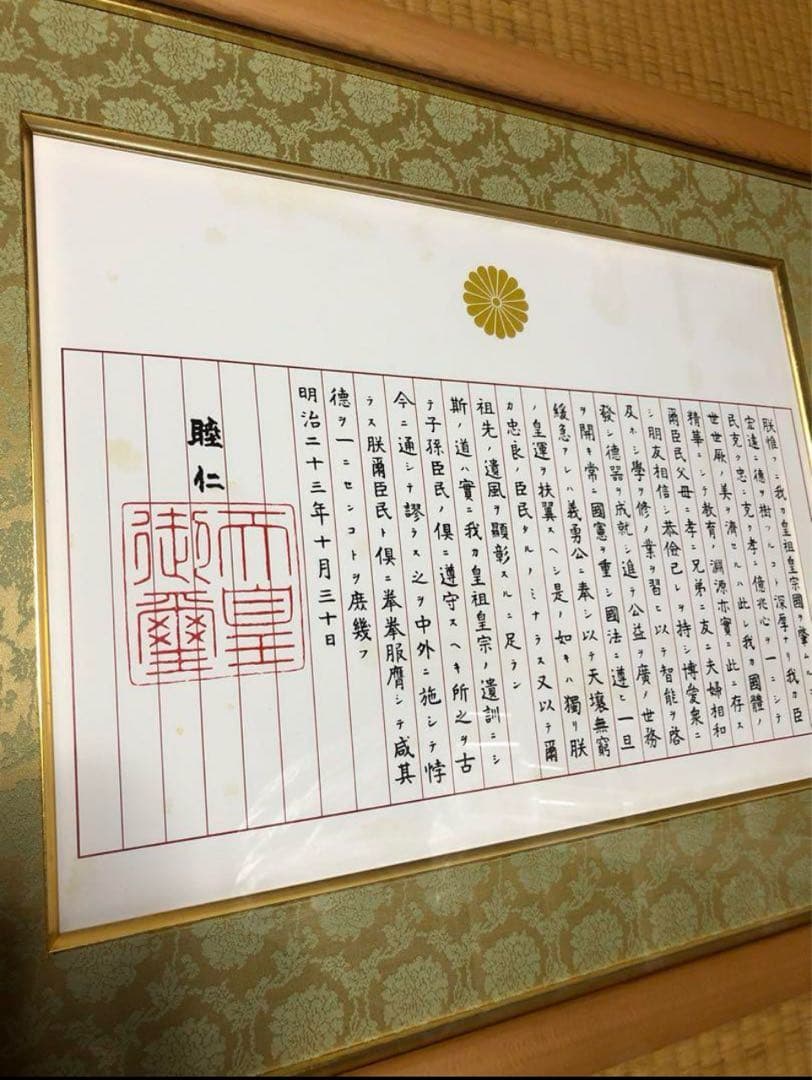 朕惟フニ我カ皇祖皇宗國ヲ肇
宏遠ニ德ヲ樹ツルコト深厚ナリ我カ臣
民克ク忠ニ克ク孝ニ億兆心ヲ一ニシテ
世世厥ノ美ヲ濟セルハ此レ我カ國體ノ
精華ニシテ教育ノ淵源亦實ニ此ニ存ス
爾臣民父母ニ孝ニ兄弟ニ友ニ夫婦相和
シ朋友相信シ恭儉己レヲ持シ博愛衆ニ
及ホシ學ヲ修メ業ヲ習ヒ以テ智能ヲ啓
發シ德器ヲ成就シ進テ公益ヲ廣メ世務
ヲ開キ常ニ國憲ヲ重シ國法ニ遵ヒ一旦
緩急アレハ義勇公ニ奉シ以テ天壤無窮
ノ皇運ヲ扶翼スヘシ是ノ如キハ獨リ朕
カ忠良ノ臣民タルノミナラス又以テ爾
祖先ノ遺風ヲ顯彰スルニ足ラン
斯ノ道ハ實ニ我カ皇祖皇宗ノ遺訓ニシ
テ子孫臣民ノ俱ニ遵守スヘキ所之ヲ古
今ニ通シテ謬ラス之ヲ中外ニ施シテ悖
ラス朕爾臣民ト俱ニ拳拳服膺シテ咸其
德ヲ一ニセンコトヲ庶幾フ
明治二十三年十月三十日
睦仁
天皇
御璽